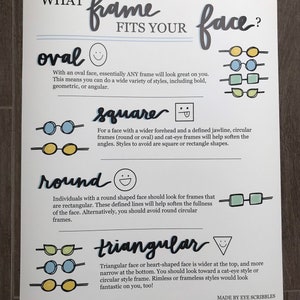 WHAT frame
FITS YOUR face?
oval
With an oval face, essentially ANY frame will look great on you.
This means you can do a wide variety of styles, including bold,
geometric, or angular.
square
For a face with a wider forehead and a defined jawline, circular
frames (round or oval) and cat-eye frames will help soften the
angles. Styles to avoid are square or rectangle shapes.
round
Individuals with a round shaped face should look for frames that
are rectangular. These defined lines will help soften the fullness
of the face. Alternatively, you should avoid round circular
frames.
triangular
Triangular face or heart-shaped face is wider at the top, and more
narrow at the bottom. You should look toward a cat-eye style or
circular style frame. Rimless or frameless styles would look
fantastic on you, too!
MADE BY EYE SCRIBBLES